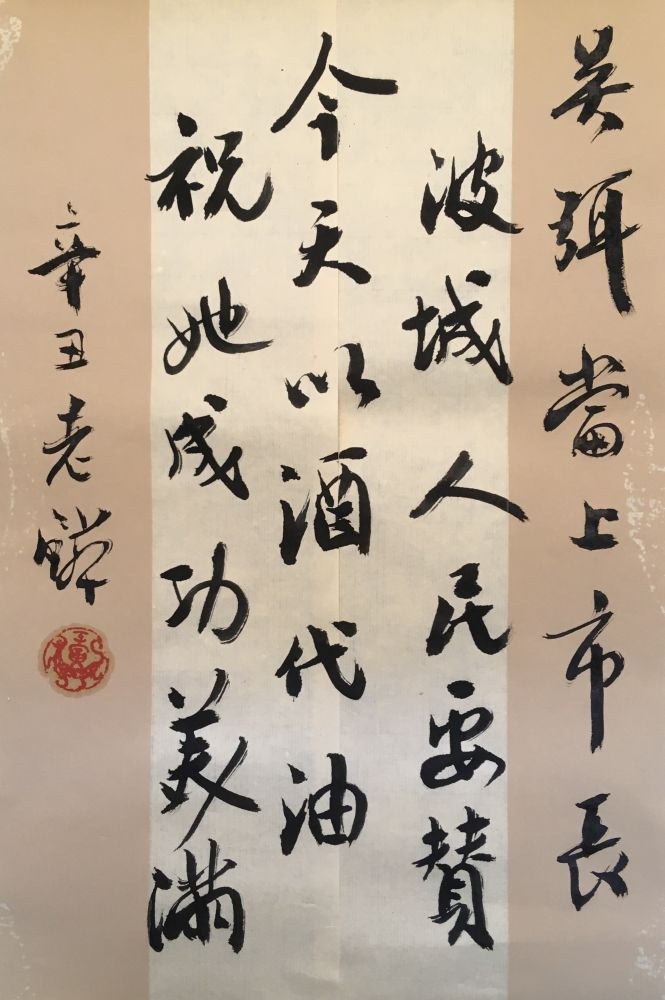 吴弭當上市長
波城人民要賛
今天以酒代油
祝她成功美滿
辛丑老